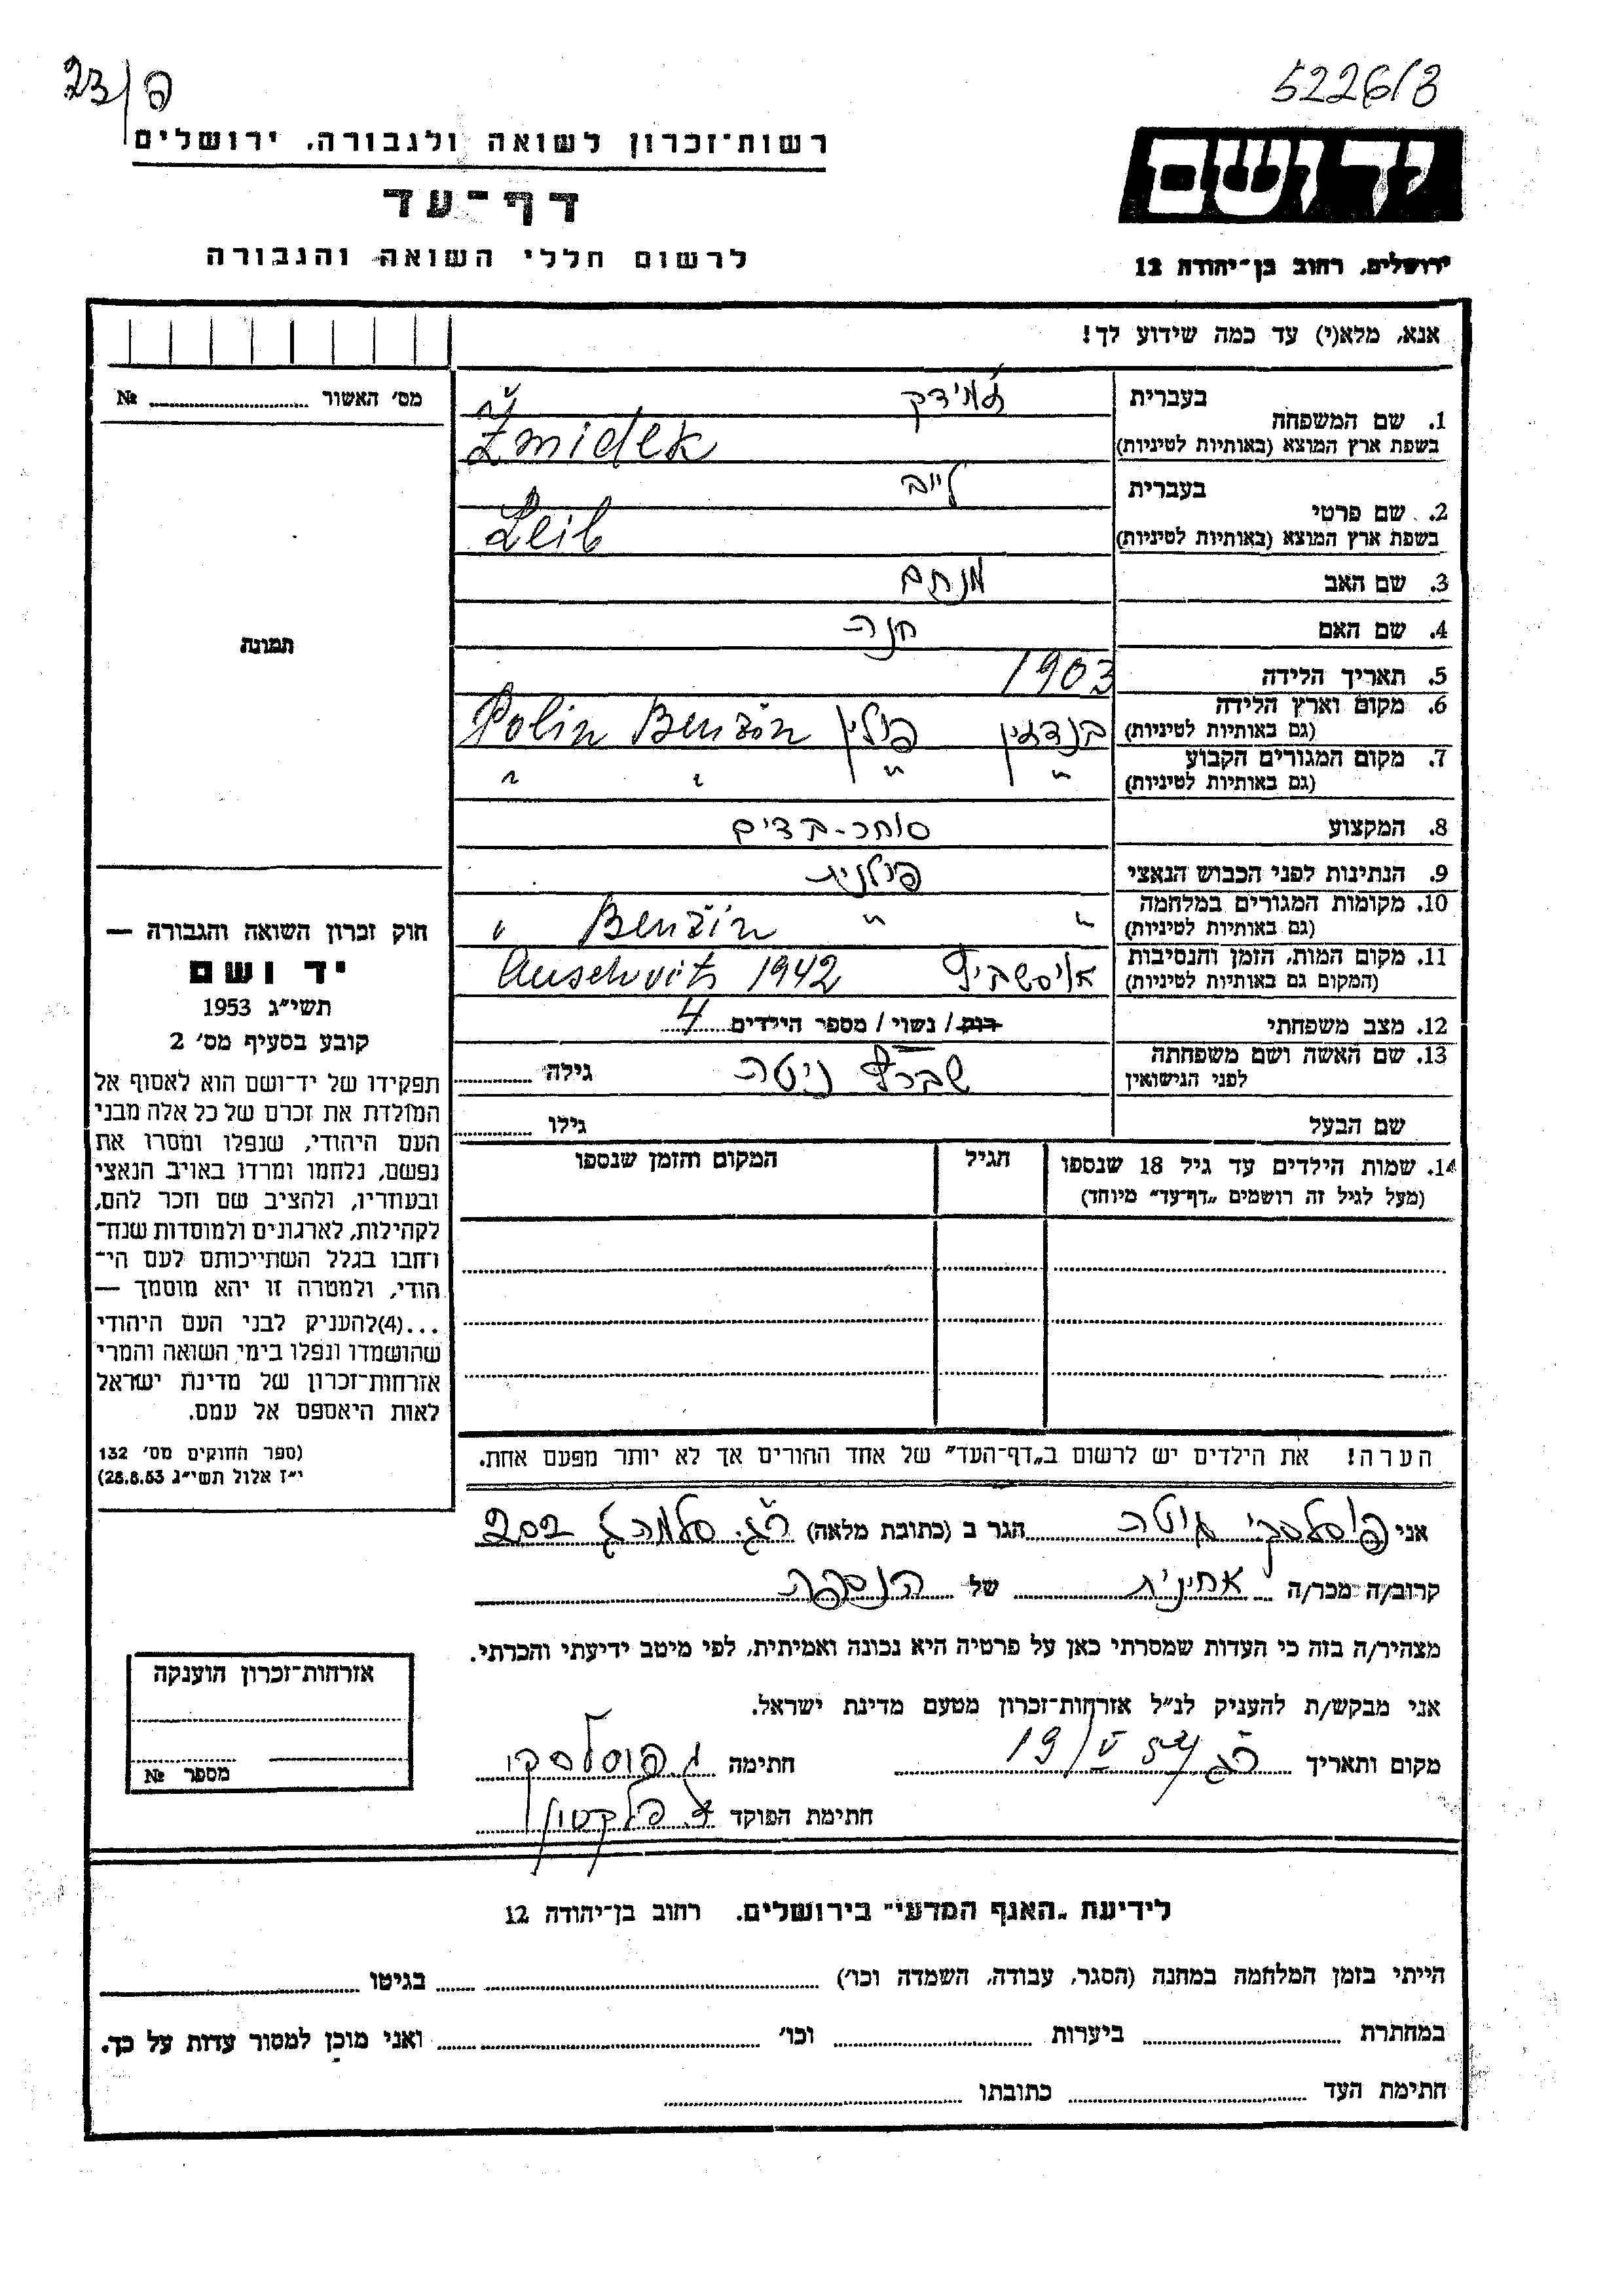 5226/3
23/פ
יד ושם
ירושלים, רחוב בן־יהודה 12
רשות־זכרון לשואה ולגבורה, ירושלים
דף־עד
לרשום חללי השואה והגבורה
אנא, מלא(י) עד כמה שידוע לך!
מס׳ האשור № 
תמונה
1. שם המשפחה בעברית
בשפת ארץ המוצא (באותיות לטיניות)
Żmidek
2. שם פרטי בעברית לייב
בשפת ארץ המוצא (באותיות לטיניות)
Leib
3. שם האב מנחם
4. שם האם חנה
5. תאריך הלידה 1903
6. מקום וארץ הלידה
(גם באותיות לטיניות) בנדזין פולין Polin Benżin
7. מקום המגורים הקבוע
(גם באותיות לטיניות) " " " "
8. המקצוע סוחר-בדים
9. הנתינות לפני הכבוש הנאצי פולנית
10. מקומות המגורים במלחמה
(גם באותיות לטיניות) " " Benżin "
11. מקום המות, הזמן והנסיבות
(המקום גם באותיות לטיניות) Auschvits 1942
12. מצב משפחתי רווק / נשוי / מספר הילדים 4
13. שם האשה ושם משפחתה
לפני הנישואין גיטה גילה
שם הבעל גילו
14. שמות הילדים עד גיל 18 שנספו הגיל המקום והזמן שנספו
(מעל לגיל זה רושמים „דף־עד" מיוחד)
הערה! את הילדים יש לרשום ב„דף־העד" של אחד ההורים אך לא יותר מפעם אחת.
חוק זכרון השואה והגבורה —
יד ושם
תשי״ג 1953
קובע בסעיף מס׳ 2
תפקידו של יד־ושם הוא לאסוף אל
המולדת את זכרם של כל אלה מבני
העם היהודי, שנפלו ומסרו את
נפשם, נלחמו ומרדו באויב הנאצי
ובעוזריו, ולהציב שם וזכר להם,
לקהילות, לארגונים ולמוסדות שנח־
רחבו בגלל השתייכותם לעם הי־
הודי, ולמטרה זו יהא מוסמך —
...(4)להעניק לבני העם היהודי
שהושמדו ונפלו בימי השואה והמרי
אזרחות־זכרון של מדינת ישראל
לאות היאספם אל עמם.
(ספר החוקים מס׳ 132
י״ז אלול תשי״ג 28.8.53)
אני גיטה הגר ב (כתובת מלאה) ר״ג. סלמה ג 202
קרוב/ה מכר/ה אחינית של הנספה
מצהיר/ה בזה כי העדות שמסרתי כאן על פרטיה היא נכונה ואמיתית, לפי מיטב ידיעתי והכרתי.
אני מבקש/ת להעניק לנ״ל אזרחות־זכרון מטעם מדינת ישראל.
מקום ותאריך ר״ג 19/V חתימה
חתימת הפוקד
אזרחות־זכרון הוענקה
מספר №
לידיעת „האגף המדעי" בירושלים. רחוב בן־יהודה 12
הייתי בזמן המלחמה במחנה (הסגר, עבודה, השמדה וכו׳) בגיטו
במחתרת ביערות וכו׳ ואני מוכן למסור עדות על כך.
חתימת העד כתובתו